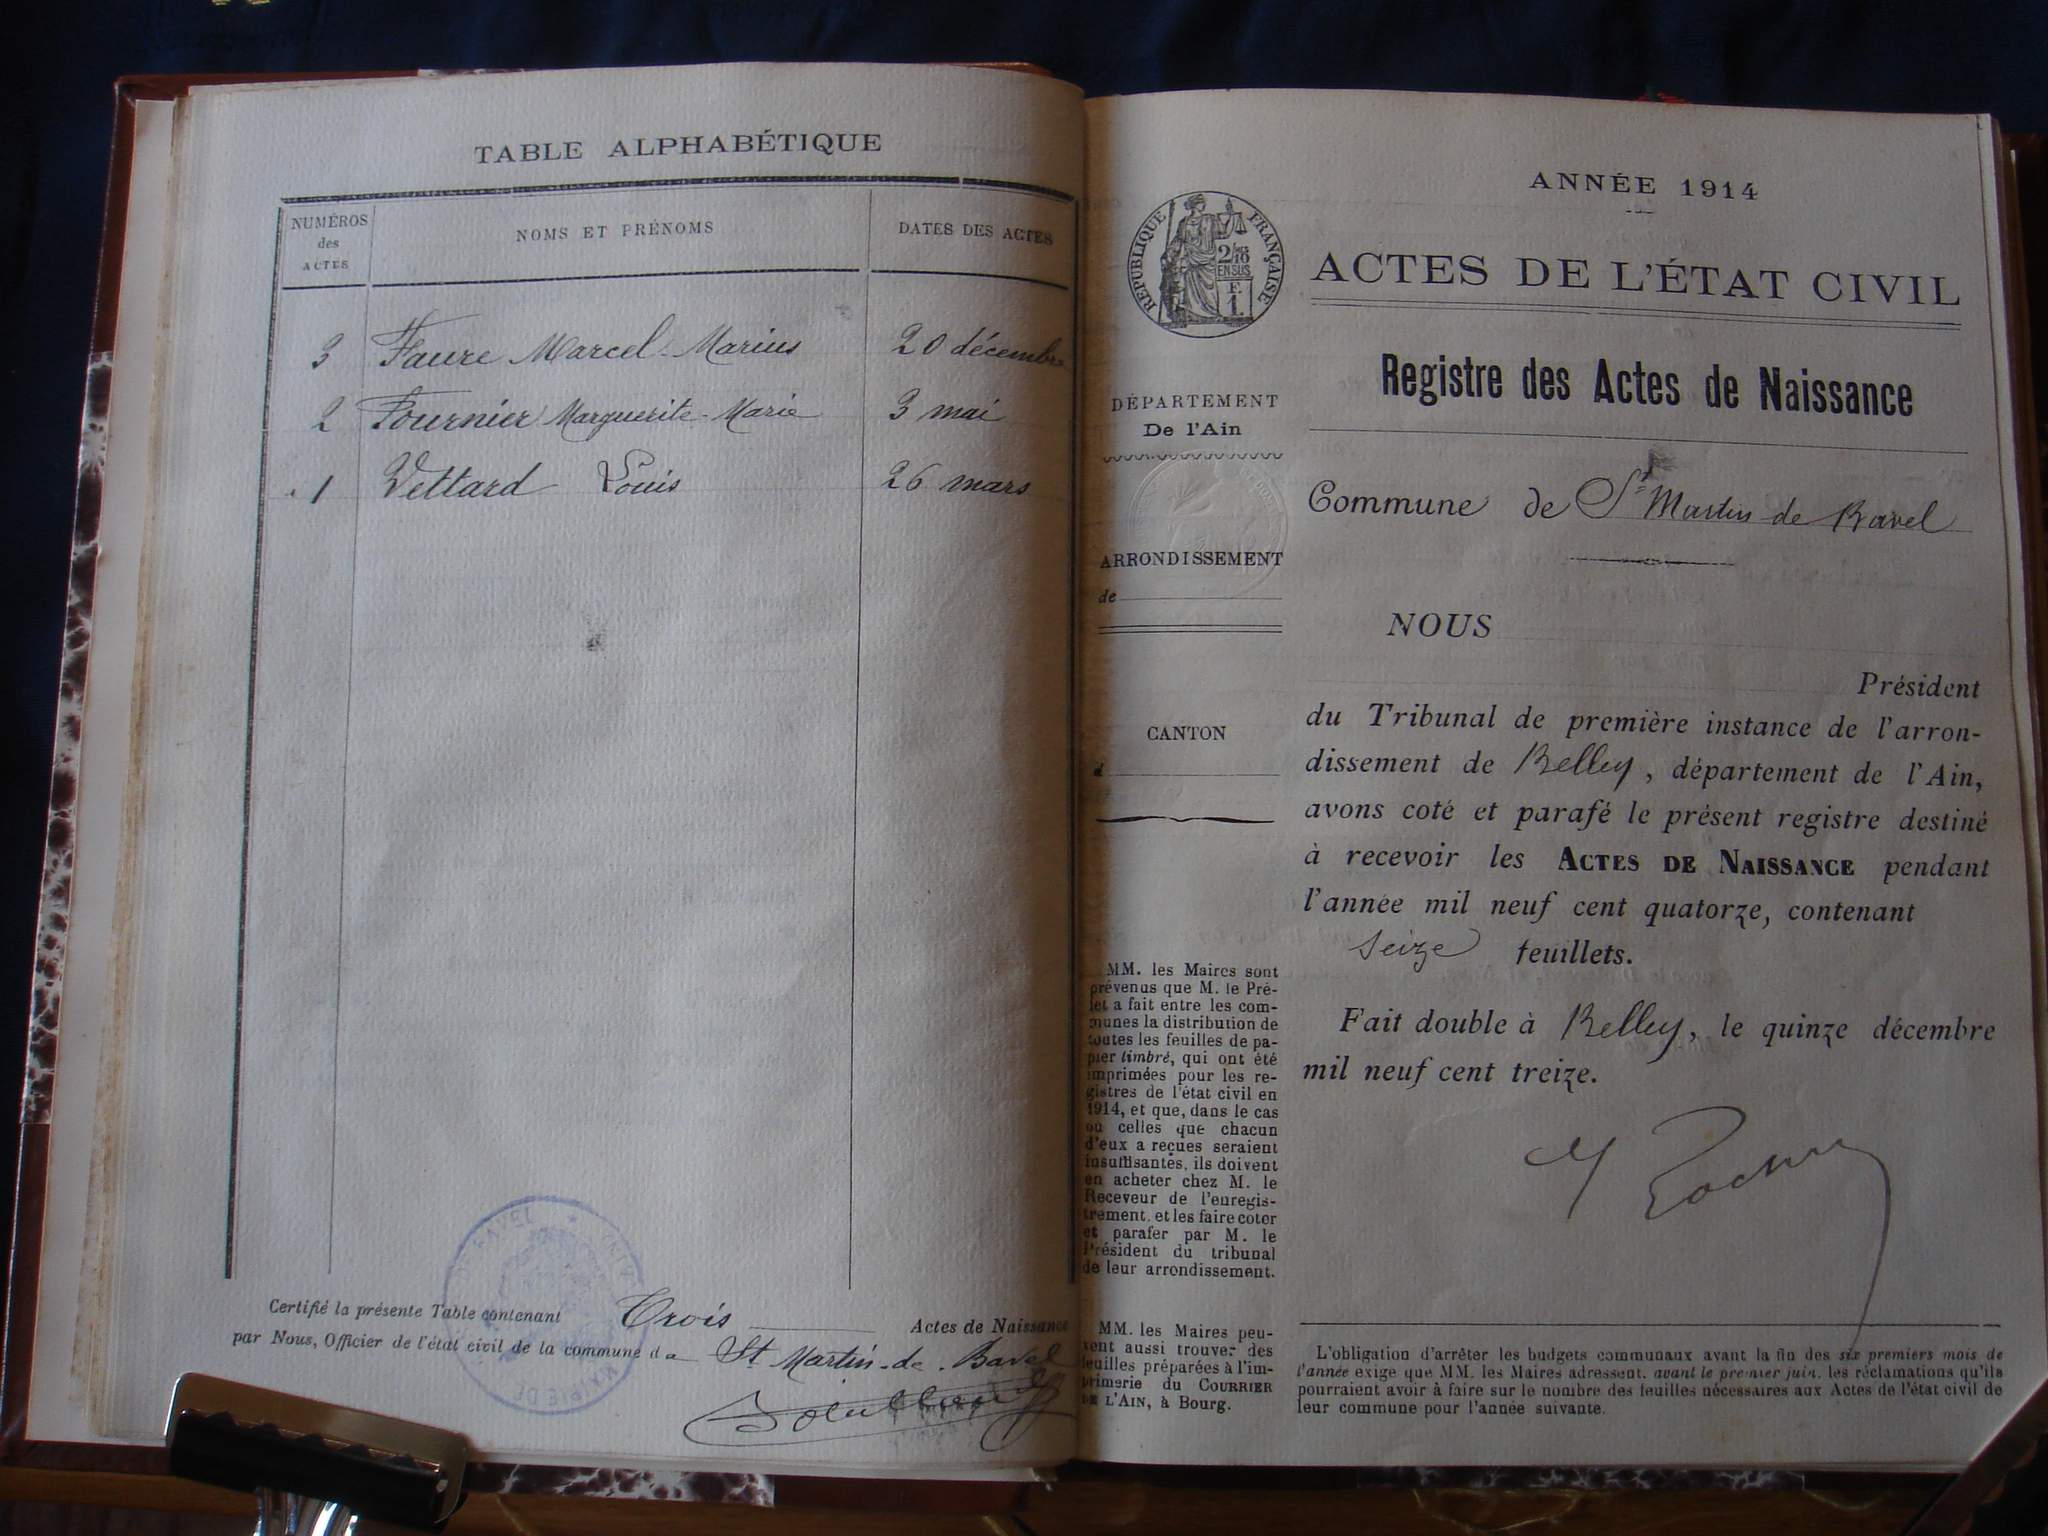 TABLE ALPHABÉTIQUE
NUMÉROS
des
ACTES
NOMS ET PRÉNOMS
DATES DES ACTES
3 Faure Marcel-Marius 20 décembre
2 Fournier Marguerite-Marie 3 mai
1 Vettard Louis 26 mars
Certifié la présente Table contenant Trois Actes de Naissance
par Nous, Officier de l'état civil de la commune de St Martin-de-Bavel
MAIRIE DE
ANNÉE 1914
RÉPUBLIQUE FRANÇAISE
2/10
EN SUS
F.
1.
ACTES DE L'ÉTAT CIVIL
Registre des Actes de Naissance
DÉPARTEMENT
De l'Ain
Commune de St Martin de Bavel
ARRONDISSEMENT
de
CANTON
d
NOUS
Président
du Tribunal de première instance de l'arron-
dissement de Belley, département de l'Ain,
avons coté et parafé le présent registre destiné
à recevoir les ACTES DE NAISSANCE pendant
l'année mil neuf cent quatorze, contenant
seize feuillets.
Fait double à Belley, le quinze décembre
mil neuf cent treize.
MM. les Maires sont
prévenus que M. le Pré-
fet a fait entre les com-
munes la distribution de
toutes les feuilles de pa-
pier timbré, qui ont été
imprimées pour les re-
gistres de l'état civil en
1914, et que, dans le cas
où celles que chacun
d'eux a reçues seraient
insuffisantes, ils doivent
en acheter chez M. le
Receveur de l'enregis-
trement, et les faire coter
et parafer par M. le
Président du tribunal
de leur arrondissement.
MM. les Maires peu-
vent aussi trouver des
feuilles préparées à l'im-
primerie du COURRIER
DE L'AIN, à Bourg.
L'obligation d'arrêter les budgets communaux avant la fin des six premiers mois de
l'année exige que MM. les Maires adressent, avant le premier juin, les réclamations qu'ils
pourraient avoir à faire sur le nombre des feuilles nécessaires aux Actes de l'état civil de
leur commune pour l'année suivante.